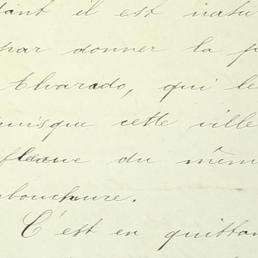 tant il est natu
par donner la p
Alvarado, qui le
puisque cette ville
fleuve du même
embouchure.
C'est en quittan